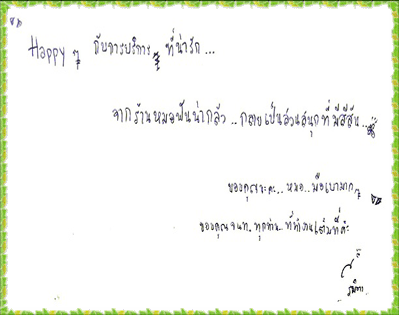 Happy ๆ กับการบริการ ที่น่ารัก...
จากร้านหมอฟันน่ากลัว.. กลายเป็นสวนสนุกที่มีสีสัน..
ขอบคุณนะคะ.. หมอ.. มือเบามาก ๆ
ขอบคุณ จนท. ทุกท่าน ที่ทำงานเต็มที่ค่ะ